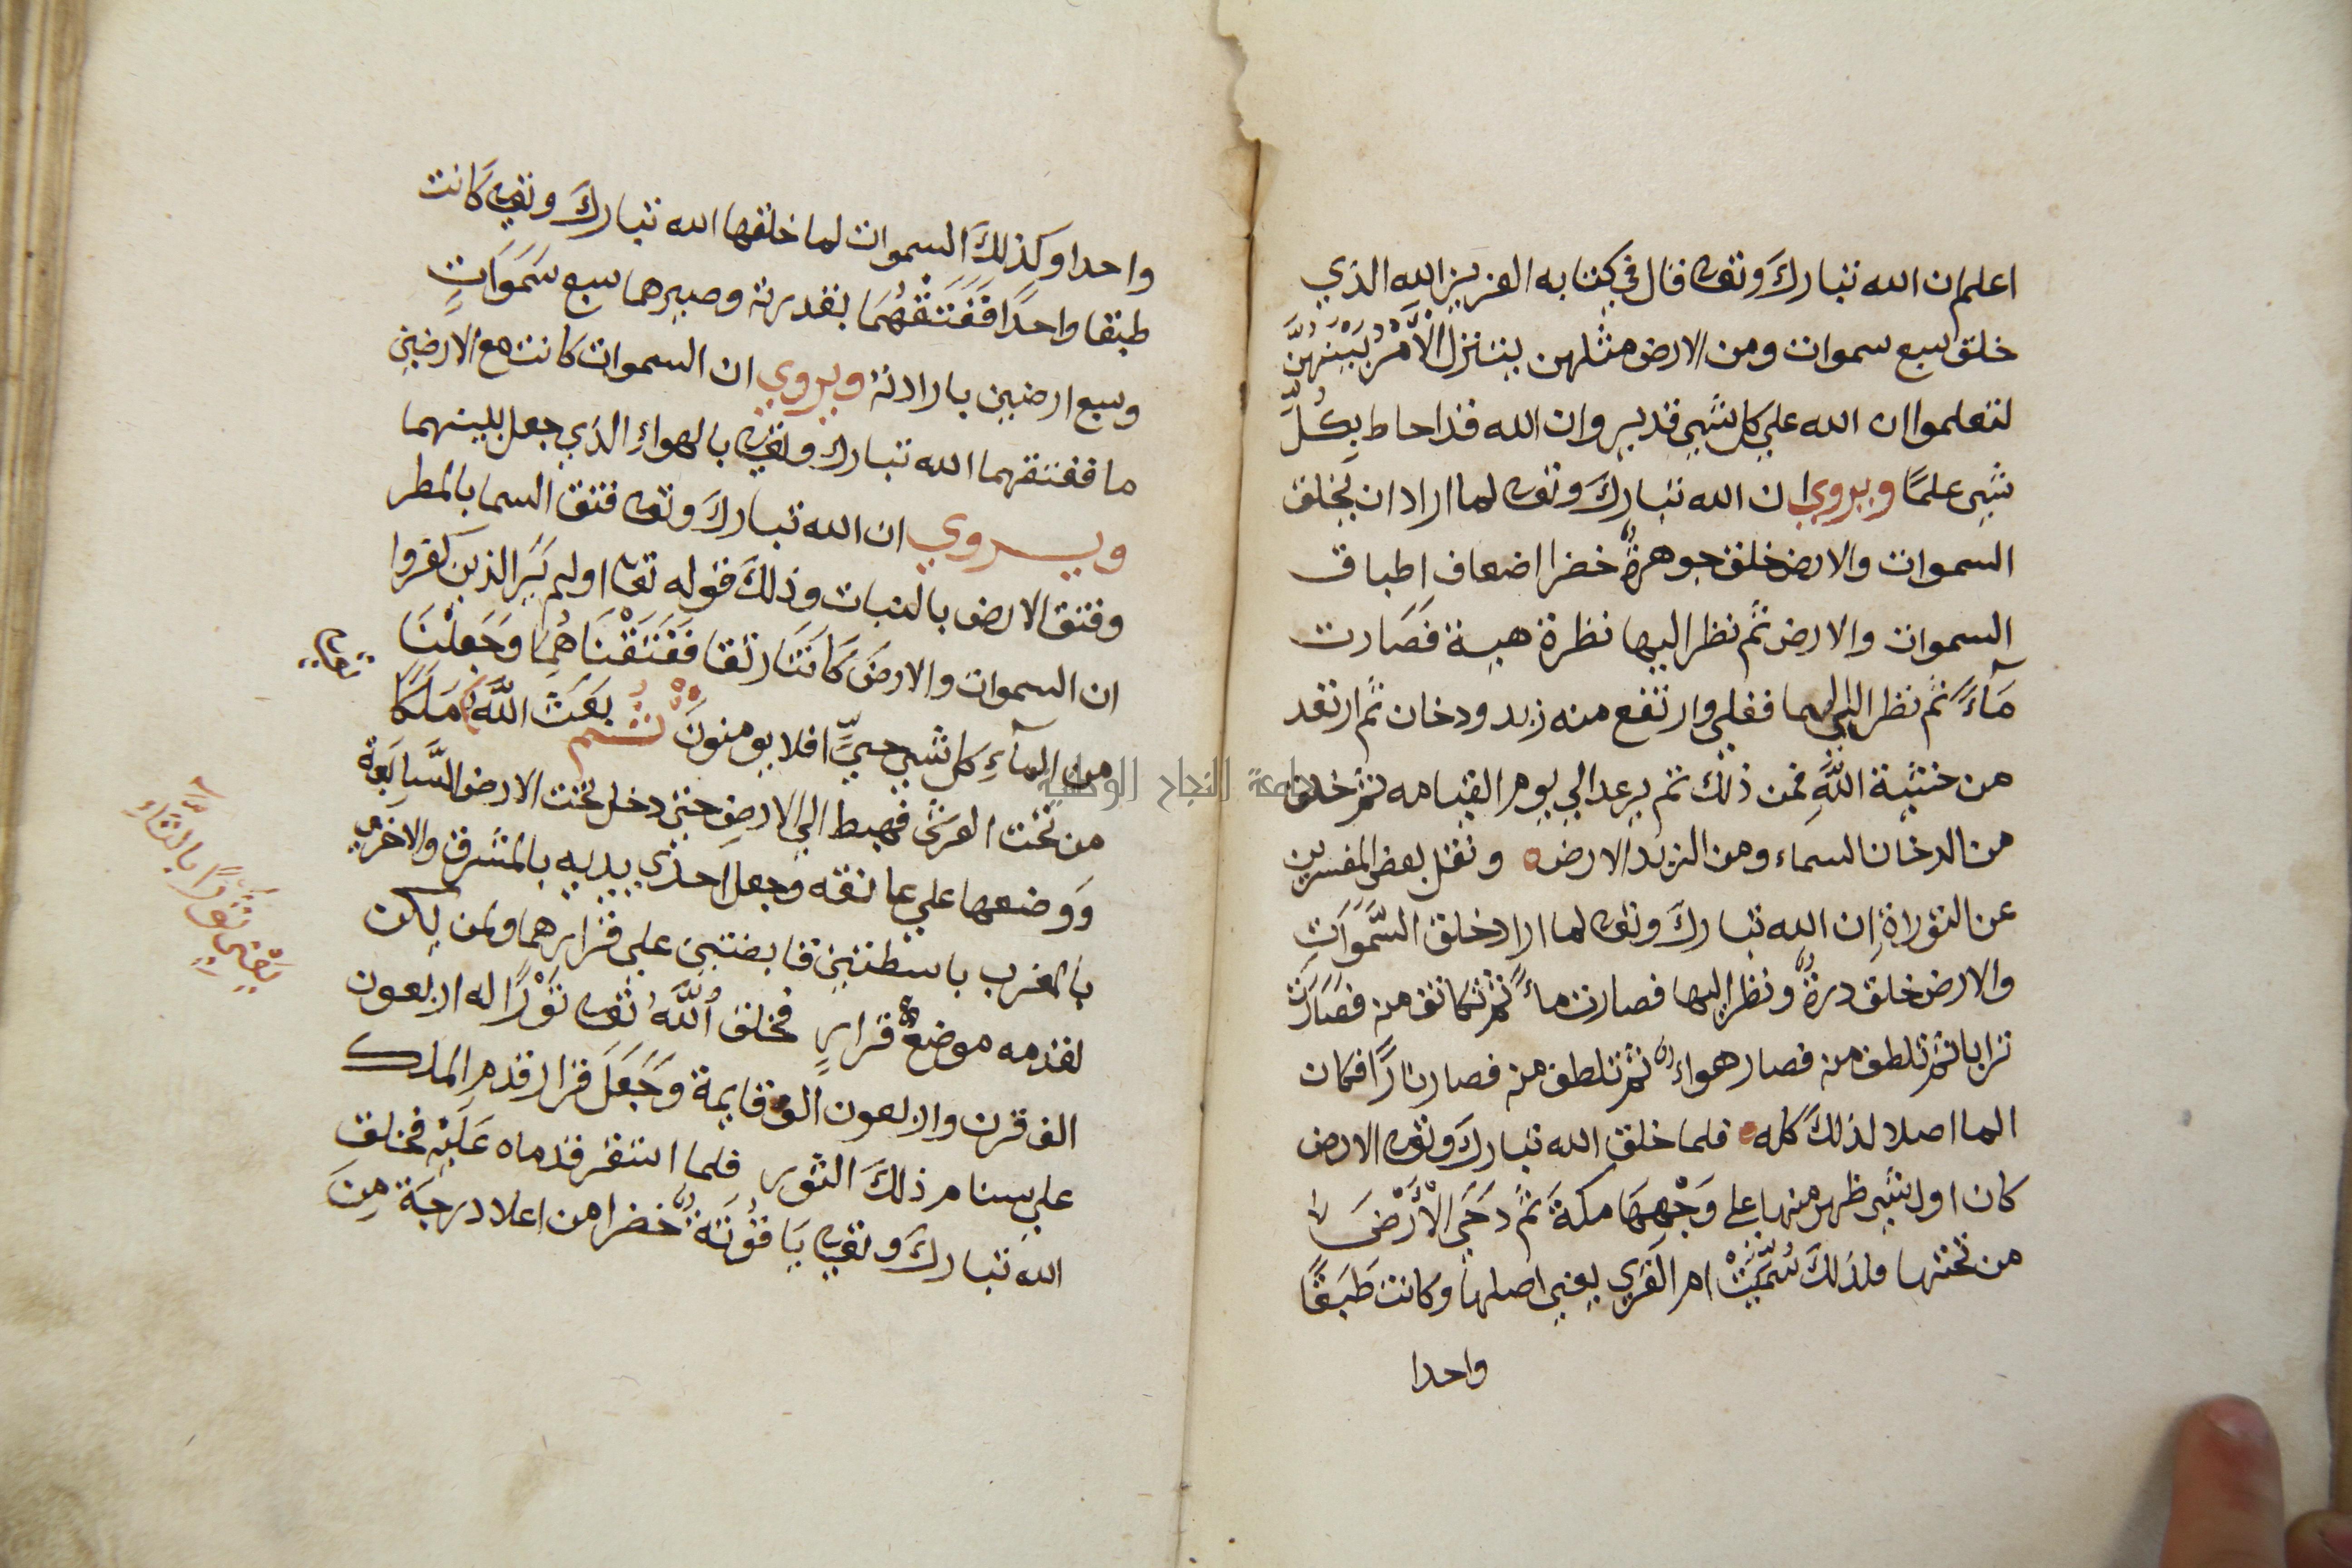 اعلم ان الله تبارك وتعالى قال في كتابه العزيز الله الذي
خلق سبع سموات ومن الارض مثلهن يتنزل الْأَمْرُ بَيْنَهُنَّ
لتعلموا ان الله علي كل شيء قدير وان الله قد احاط بِكُلِّ
شيء علمًا ويروي ان الله تبارك وتعالى لما اراد ان يخلق
السموات والارض خلق جوهرةً خضرا اضعاف اطباق
السموات والارض ثم نظر اليها نظرة هيبة فصارت
مَآءً ثم نظر الى الما فغلي وارتفع منه زبد ودخان ثم ارتعد
من خشية اللَّهِ فمن ذلك ثم يرعد الي يوم القيامه ثم خلق
من الدخان السماء ومن الزبد الارض ونقل بعض المفسرين
عن التوراة ان الله تبارك وتعالى لما اراد خلق السَّمَوَاتِ
والارض خلق درةً ونظر اليها فصارت ماءً ثم تكاثف منه فصَارَتْ
ترابا ثم تلطف منه فصار هواءً ثم تلطف منه فصار نارًا فكان
الما اصلا لذلك كله فلما خلق الله تبارك وتعالى الارض
كان اول شيء ظهر منها علي وَجْهِهَا مكةَ ثم دَحَي الْأَرْضَ
من تحتها فلذلك سُمِّيَتْ ام القري يعني اصلها وكانت طَبَقًا
واحدا
واحدا وكذلك السموات لما خلقها الله تبارك وتعالى كانت
طبقا واحدًا فَفَتَقَهُمَا بقدرته وصيرهما سبع سَمَوَاتٍ
وسبع ارضين بارادته ويروي ان السموات كانت مع الارضين
ما ففتقهما الله تبارك وتعالى بالهواء الذي جعل بينهما
ويروي ان الله تبارك وتعالى فتق السما بالمطر
وفتق الارض بالنبات وذلك قوله تعالى اولم يَرَ الذين كفروا
ان السموات والارضَ كَانَتَا رتقا فَفَتَقْنَاهُمَا وَجَعَلْنَا
من المآءِ كل شيء حيٍّ افلا يومنونَ ثم بَعَثَ اللَّهُ مَلَكًا
تعالى
من تحت العرش فهبط الي الارض حتى دخل تحت الارض السَّابِعَة
وَوضعها علي عاتقه وجعل احدي يديه بالمشرق والاخري
بالمغرب باسطتين قابضتين علي قرارهما ولمن يكن
لقدمه موضع قرارٍ فخلق اللَّهُ تعالى ثَوْرًا له اربعون
يَعْنِي ثَوْرًا بِالثَّاءِ
الف قرن واربعون الف قايمة وَجَعَلَ قرار قدم الملك
علي سنام ذلك الثور فلما استقر قدماه عَلَيْهِ فخلق
الله تبارك وتعالى يَاقُوتَةً خضرا من اعلا درجَة مِنَ